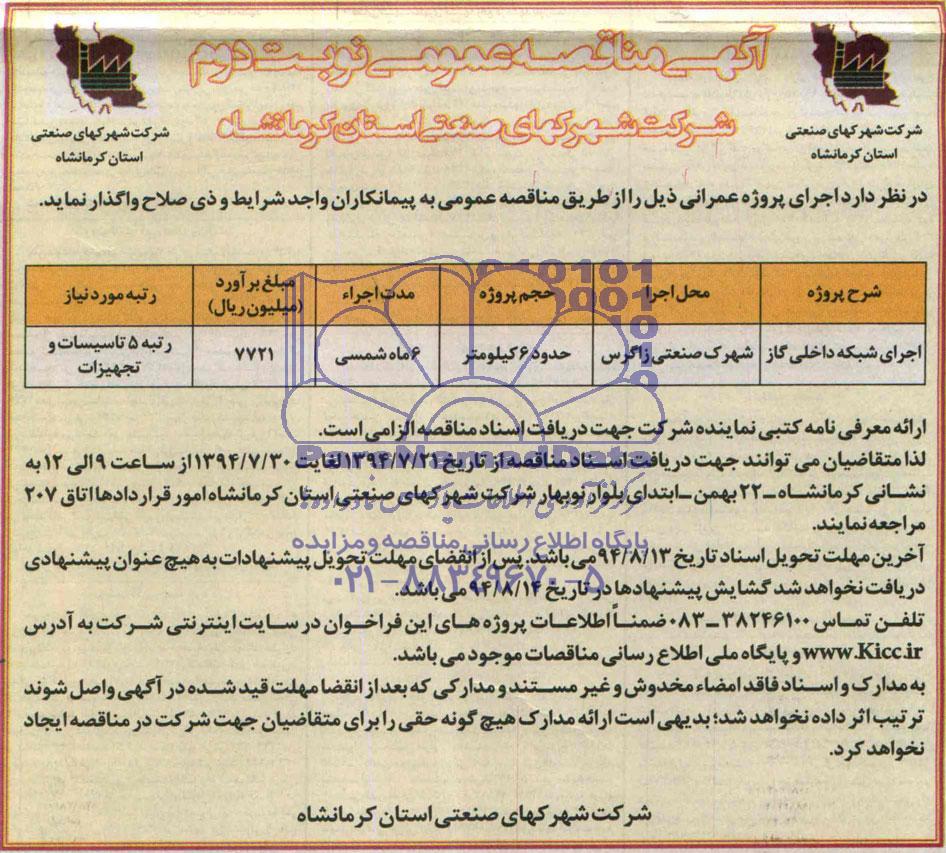 آگهی مناقصه عمومی نوبت دوم
شرکت شهرکهای صنعتی استان کرمانشاه
شرکت شهرکهای صنعتی
استان کرمانشاه
شرکت شهرکهای صنعتی
استان کرمانشاه
در نظر دارد اجرای پروژه عمرانی ذیل را از طریق مناقصه عمومی به پیمانکاران واجد شرایط و ذی صلاح واگذار نماید.
شرح پروژه محل اجرا حجم پروژه مدت اجراء مبلغ برآورد (میلیون ریال) رتبه مورد نیاز
اجرای شبکه داخلی گاز شهرک صنعتی زاگرس حدود ۶ کیلومتر ۶ ماه شمسی ۷۷۲۱ رتبه ۵ تاسیسات و تجهیزات
ارائه معرفی نامه کتبی نماینده شرکت جهت دریافت اسناد مناقصه الزامی است.
لذا متقاضیان می توانند جهت دریافت اسناد مناقصه از تاریخ ۱۳۹۴/۷/۲۱ لغایت ۱۳۹۴/۷/۳۰ از ساعت ۹ الی ۱۲ به
نشانی کرمانشاه ـ ۲۲ بهمن ـ ابتدای بلوار نوبهار شرکت شهرکهای صنعتی استان کرمانشاه امور قراردادها اتاق ۲۰۷
مراجعه نمایند.
پایگاه اطلاع رسانی مناقصه و مزایده
آخرین مهلت تحویل اسناد تاریخ ۹۴/۸/۱۳ می باشد. پس از انقضای مهلت تحویل پیشنهادات به هیچ عنوان پیشنهادی
دریافت نخواهد شد گشایش پیشنهادها در تاریخ ۹۴/۸/۱۴ می باشد.
۰۲۱-۸۸۳۴۹۶۷۰-۵
تلفن تماس ۳۸۲۴۶۱۰۰ ـ ۰۸۳ ضمناً اطلاعات پروژه های این فراخوان در سایت اینترنتی شرکت به آدرس
www.Kicc.ir و پایگاه ملی اطلاع رسانی مناقصات موجود می باشد.
به مدارک و اسناد فاقد امضاء مخدوش و غیر مستند و مدارکی که بعد از انقضا مهلت قید شده در آگهی واصل شوند
ترتیب اثر داده نخواهد شد؛ بدیهی است ارائه مدارک هیچ گونه حقی را برای متقاضیان جهت شرکت در مناقصه ایجاد
نخواهد کرد.
شرکت شهرکهای صنعتی استان کرمانشاه